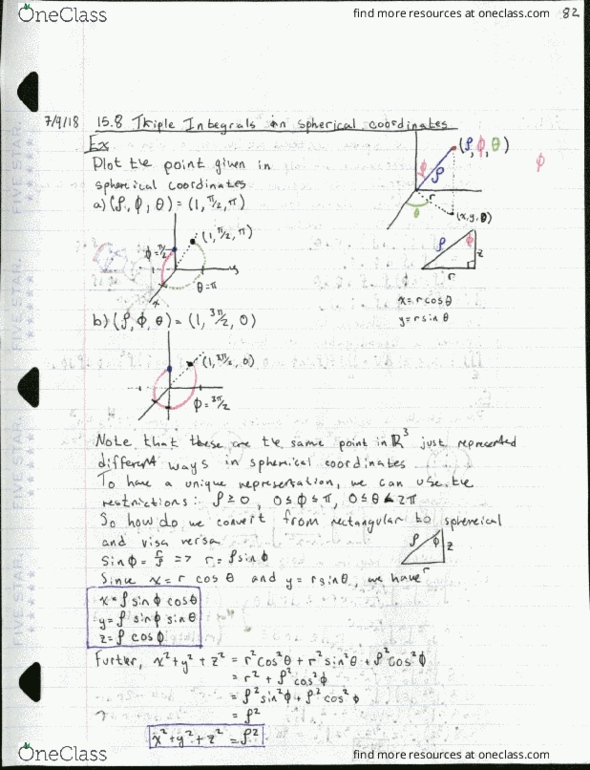 OneClass
find more resources at oneclass.com
82
7/9/18 15.8 Triple Integrals in spherical coordinates
Ex
Plot the point given in
spherical coordinates
a) (ρ, ϕ, θ) = (1, π/2, π)
(ρ, ϕ, θ)
ϕ
ϕ
ρ
r
θ
(x, y, 0)
(1, π/2, π)
ϕ = π/2
θ = π
x
y
ρ
ϕ
z
r
x = r cos θ
y = r sin θ
b) (ρ, ϕ, θ) = (1, 3π/2, 0)
(1, 3π/2, 0)
ϕ = 3π/2
Note that these are the same point in ℝ³ just represented
different ways in spherical coordinates
To have a unique representation, we can use the
restrictions: ρ ≥ 0, 0 ≤ ϕ ≤ π, 0 ≤ θ < 2π
So how do we convert from rectangular to spherical
and visa versa
ρ
ϕ
z
r
sin ϕ = r/ρ => r = ρ sin ϕ
Since x = r cos θ and y = r sin θ, we have
x = ρ sin ϕ cos θ
y = ρ sin ϕ sin θ
z = ρ cos ϕ
Furter, x² + y² + z² = r² cos² θ + r² sin² θ + ρ² cos² ϕ
= r² + ρ² cos² ϕ
= ρ² sin² ϕ + ρ² cos² ϕ
= ρ²
x² + y² + z² = ρ²
OneClass
find more resources at oneclass.com
FIVE STAR.
FIVE STAR.
FIVE STAR.
FIVE STAR.